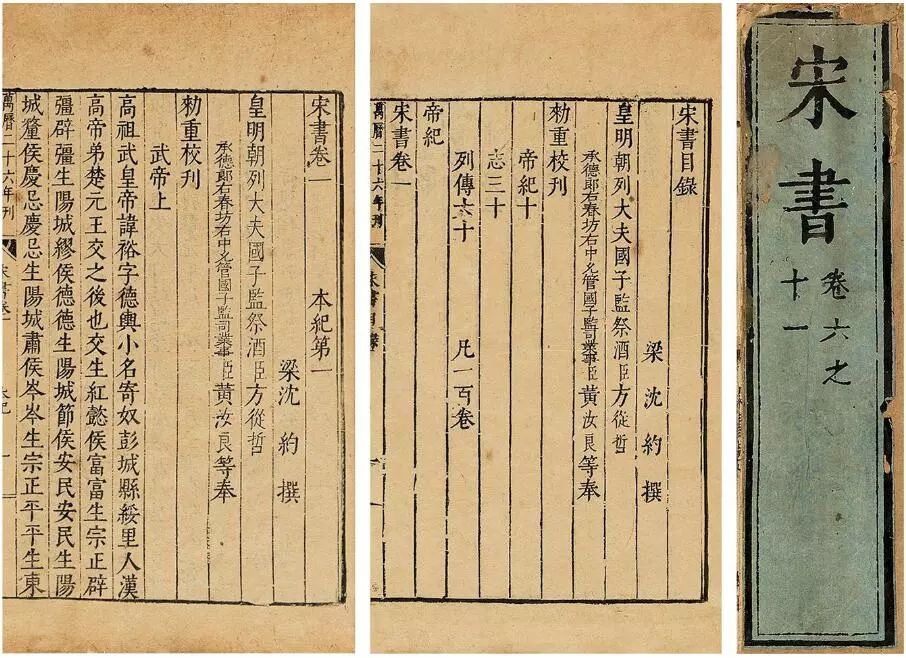 宋書
卷六之
十一
宋書目錄
梁沈約撰
皇明朝列大夫國子監祭酒臣方從哲
承德郎右春坊右中允管國子監司業事臣黃汝良等奉
勑重校刊
帝紀十
志三十
列傳六十 凡一百卷
帝紀
宋書卷一
萬曆二十六年刊 宋書目錄 一
宋書卷一 本紀第一
梁沈約撰
皇明朝列大夫國子監祭酒臣方從哲
承德郎右春坊右中允管國子監司業事臣黃汝良等奉
勑重校刊
武帝上
高祖武皇帝諱裕字德輿小名寄奴彭城縣綏里人漢
高帝弟楚元王交之後也交生紅懿侯富富生宗正辟
彊辟彊生陽城繆侯德德生陽城節侯安民安民生陽
城釐侯慶忌慶忌生陽城肅侯岑岑生宗正平平生東
萬曆二十六年刊 宋書卷一